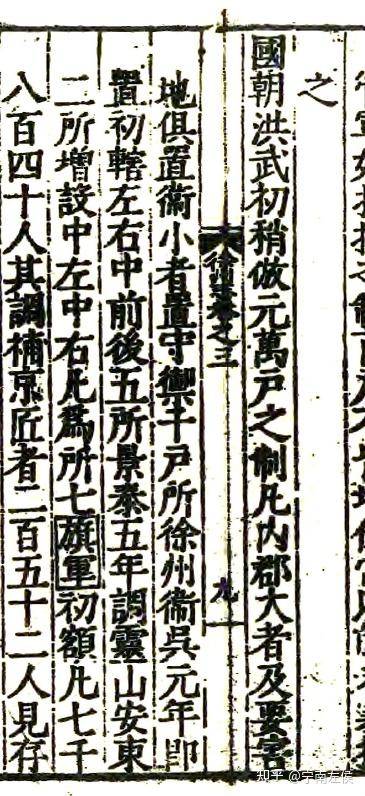 之
國朝洪武初稍倣元萬戶之制凡内郡大者及要害
徐州志卷之三 九
地俱置衞小者置守禦千戶所徐州衞吳元年卽
置初轄左右中前後五所景泰五年調靈山安東
二所增設中左中右凡爲所七旗軍初額凡七千
八百四十人其調補京匠者二百五十二人見存
知乎 @宁南左侯